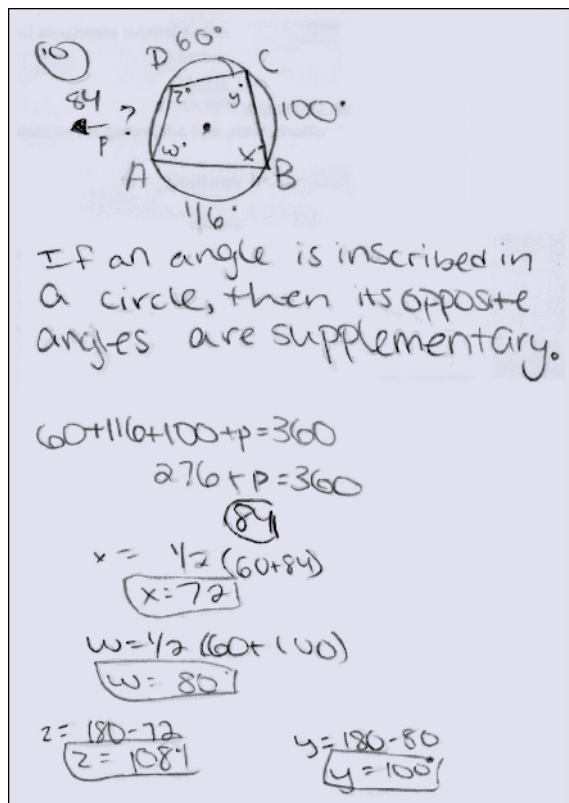 10
60°
D C
84 z° y° 100°
P ?
w° x°
A B
116°
If an angle is inscribed in
a circle, then its opposite
angles are supplementary.
60+116+100+p=360
276+p=360
84
x = 1/2 (60+84)
x=72
w=1/2 (60+100)
w= 80°
z= 180-72
z= 108°
y=180-80
y=100°